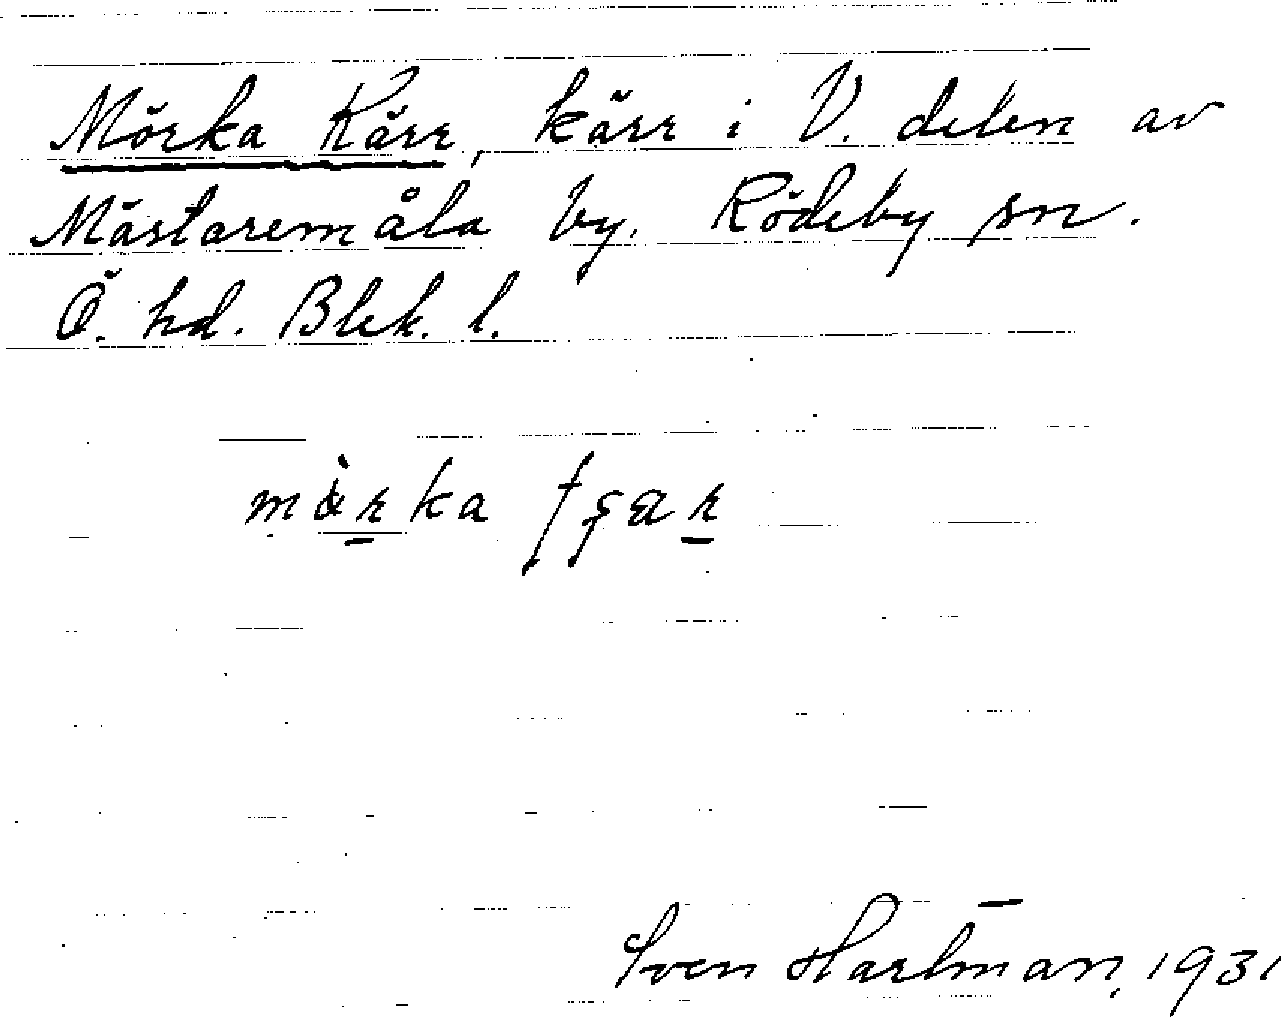 Mörka Kärr, kärr i V. delen av
Mästaremåla by. Rödeby sn.
Ö. hd. Blek. l.
Sven Hartman, 1931